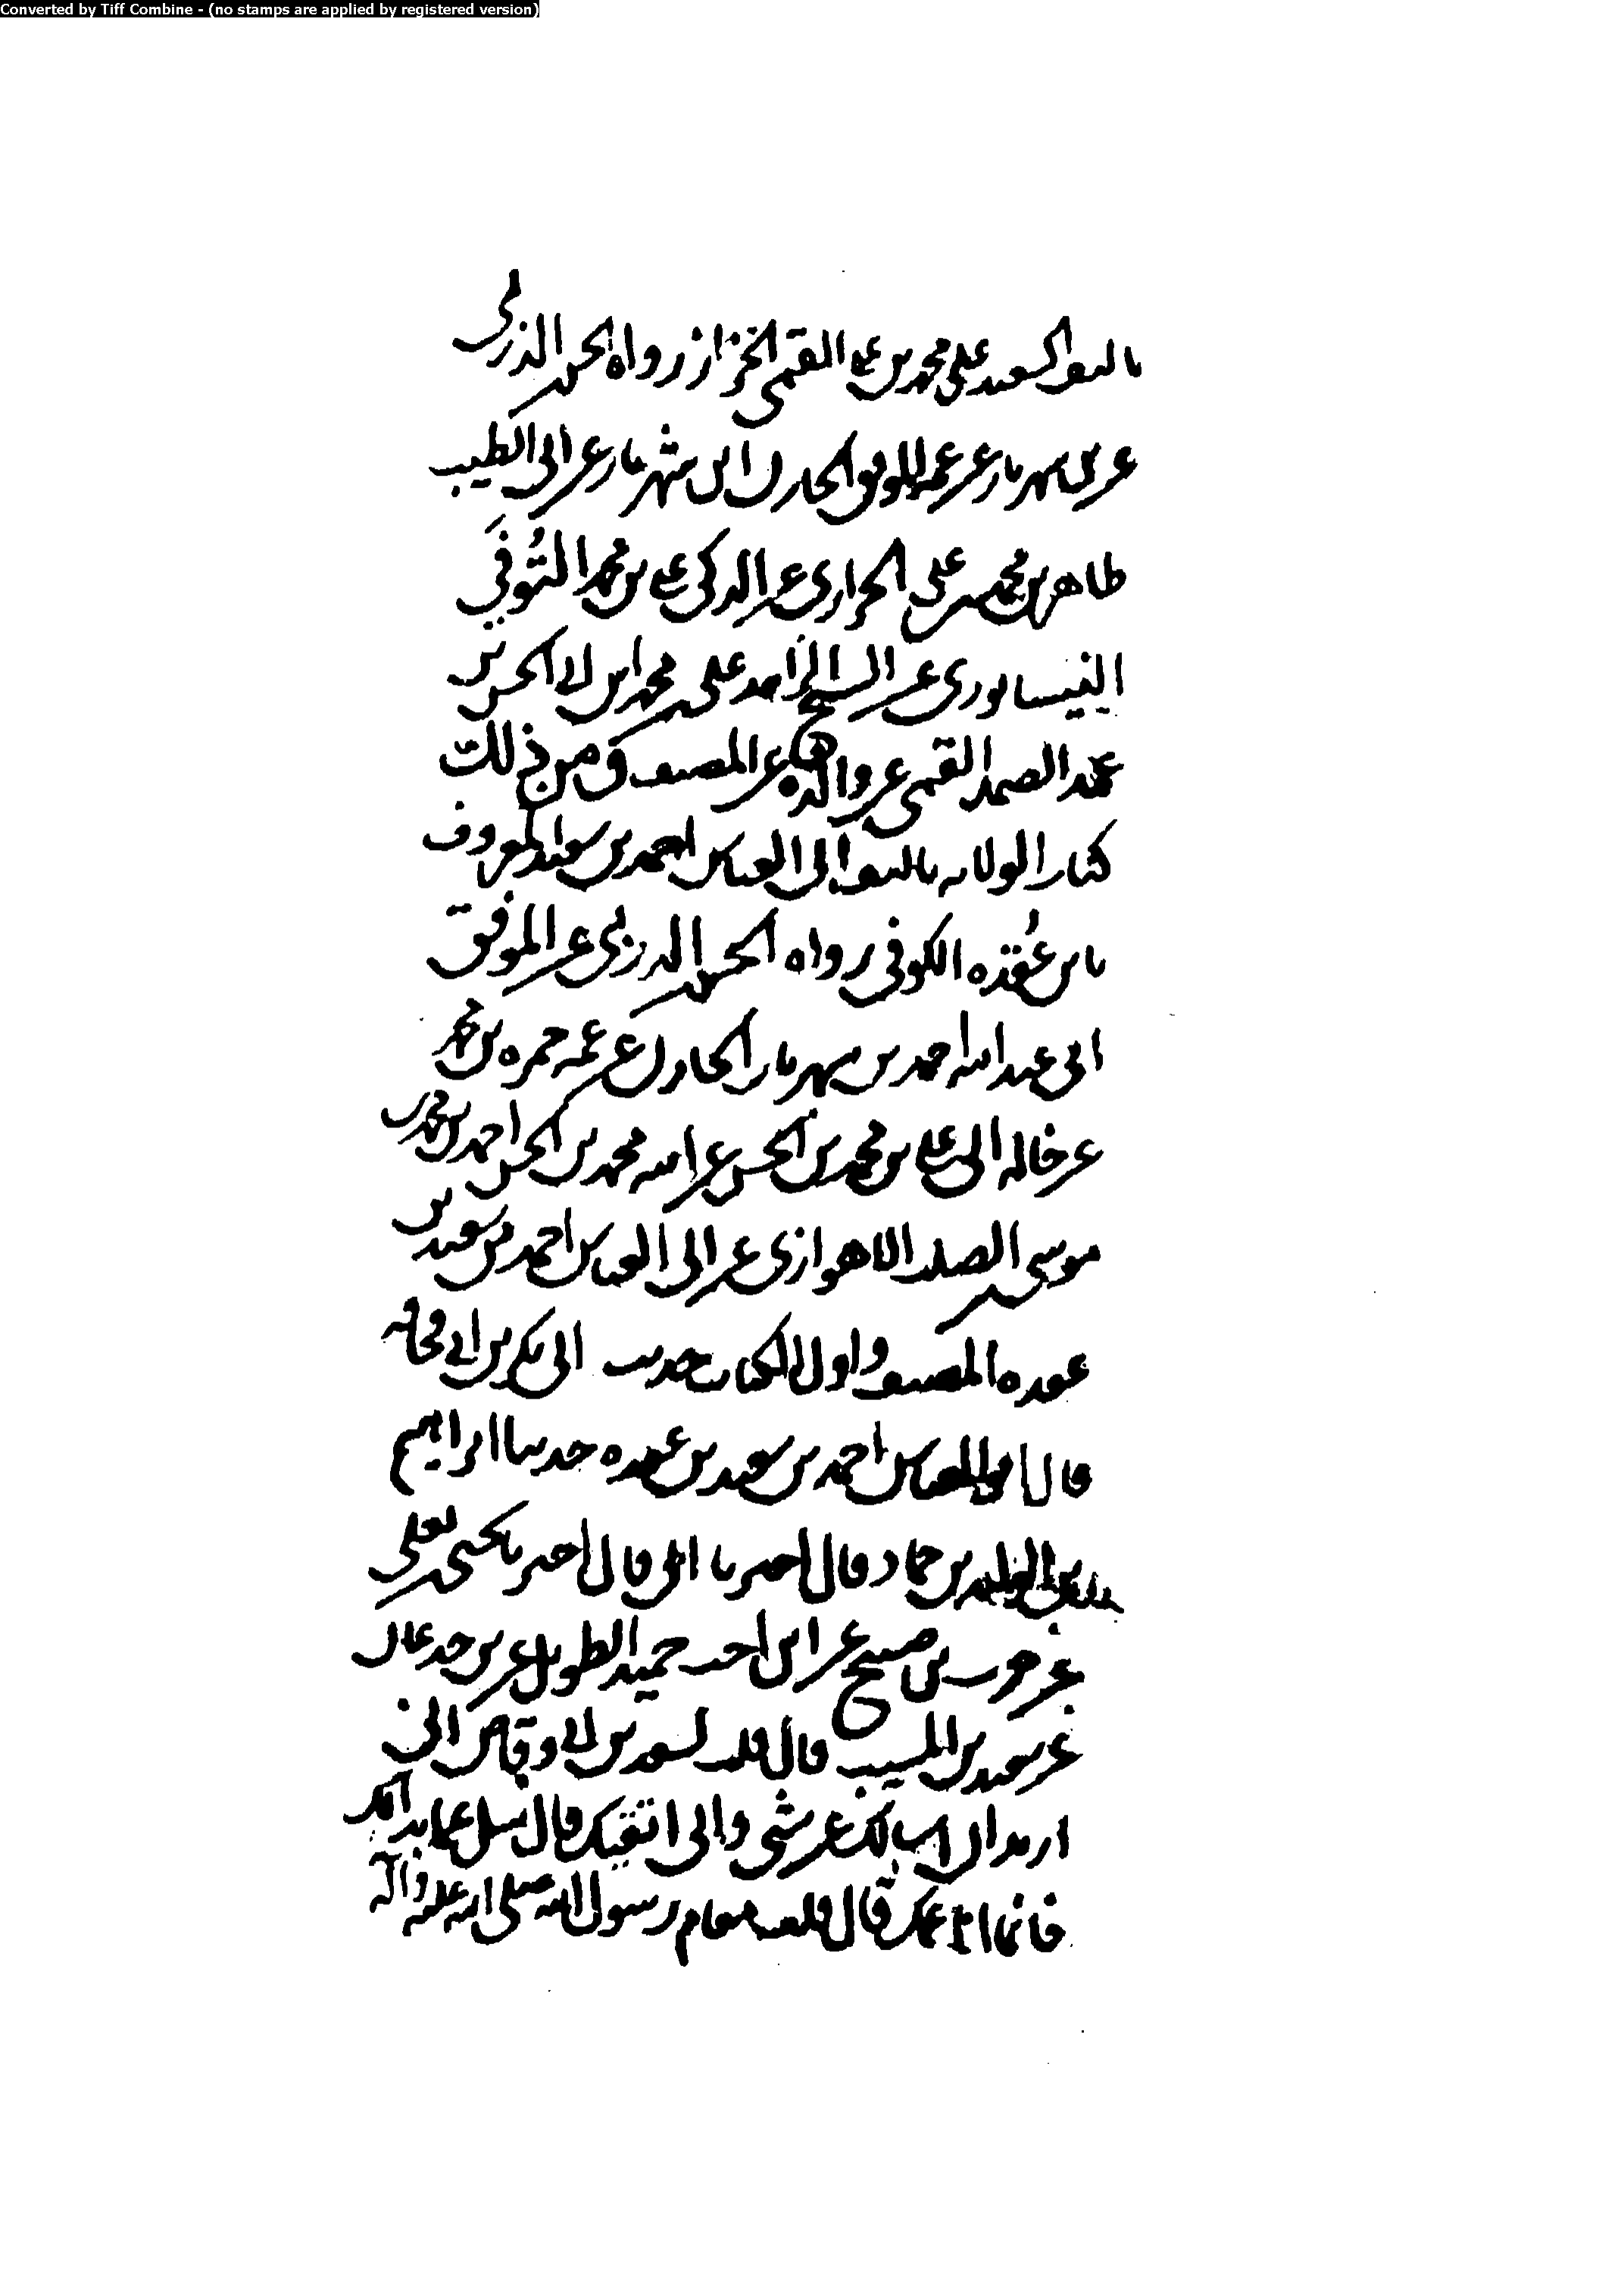 Converted by Tiff Combine - (no stamps are applied by registered version)
السعيد علي محمد بن علي القمي الخزاز رواه الحسن الدربي
عن بن شهريار عن عمه الموفق الخازن ابن شهريار عن ابي الطيب
طاهر بن محمد بن علي الحواري عن الزكي علي بن محمد التوفي
النيسابوري عن الشيخ الزاهد علي محمد ابن ابي الحسن بن
عبد الصمد القمي عن والده عن المصنف ومن ذلك
كتاب الولاية تاليف ابي العباس احمد بن سعيد المعروف
بابن عقده الكوفي رواه الحسن الدربي عن الموفق
ابي عبد الله احمد بن شهريار الخازن عن عمه حمزه بن محمد
عن خاله ابي علي بن محمد بن الحسن عن ابيه محمد بن الحسن احمد بن محمد بن
موسى الصلت الاهوازي عن ابي العباس احمد بن سعيد بن
عقده المصنف واول الكتاب حديث ابي بكر بن ابي قحافه
قال ابو العباس احمد بن سعيد بن عقده حدثنا ابراهيم
بن الوليد بن حماد قال اخبرنا ابي قال اخبرنا يحيى بن يعلى
عن حرب بن صبيح عن ابن اخت حميد الطويل عن بن جدعان
عن سعيد بن المسيب قال قلت لسعد بن ابي وقاص اني
اريد ان اسالك عن شي واني اتقيك قال سل عما بدا لك
فانما انا عمك قال قلت مقام رسول الله صلى الله عليه وآله